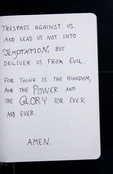 TRESPASS AGAINST US.
AND LEAD US NOT INTO
TEMPTATION, BUT
DELIVER US FROM EVIL.
FOR THINE IS THE KINGDOM,
AND THE POWER AND
THE GLORY FOR EVER
AND EVER.
AMEN.